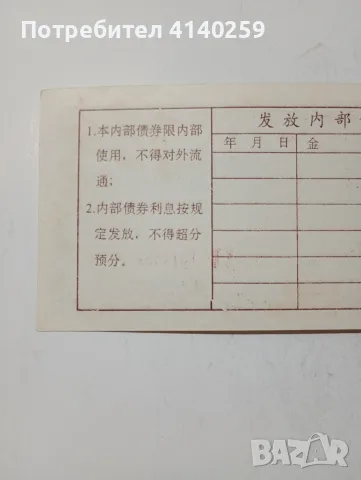 Потребител 4140259
1.本内部债券限内部
使用，不得对外流
通；
2.内部债券利息按规
定发放，不得超分
预分。
发放内部
年月日 金
BAZAR